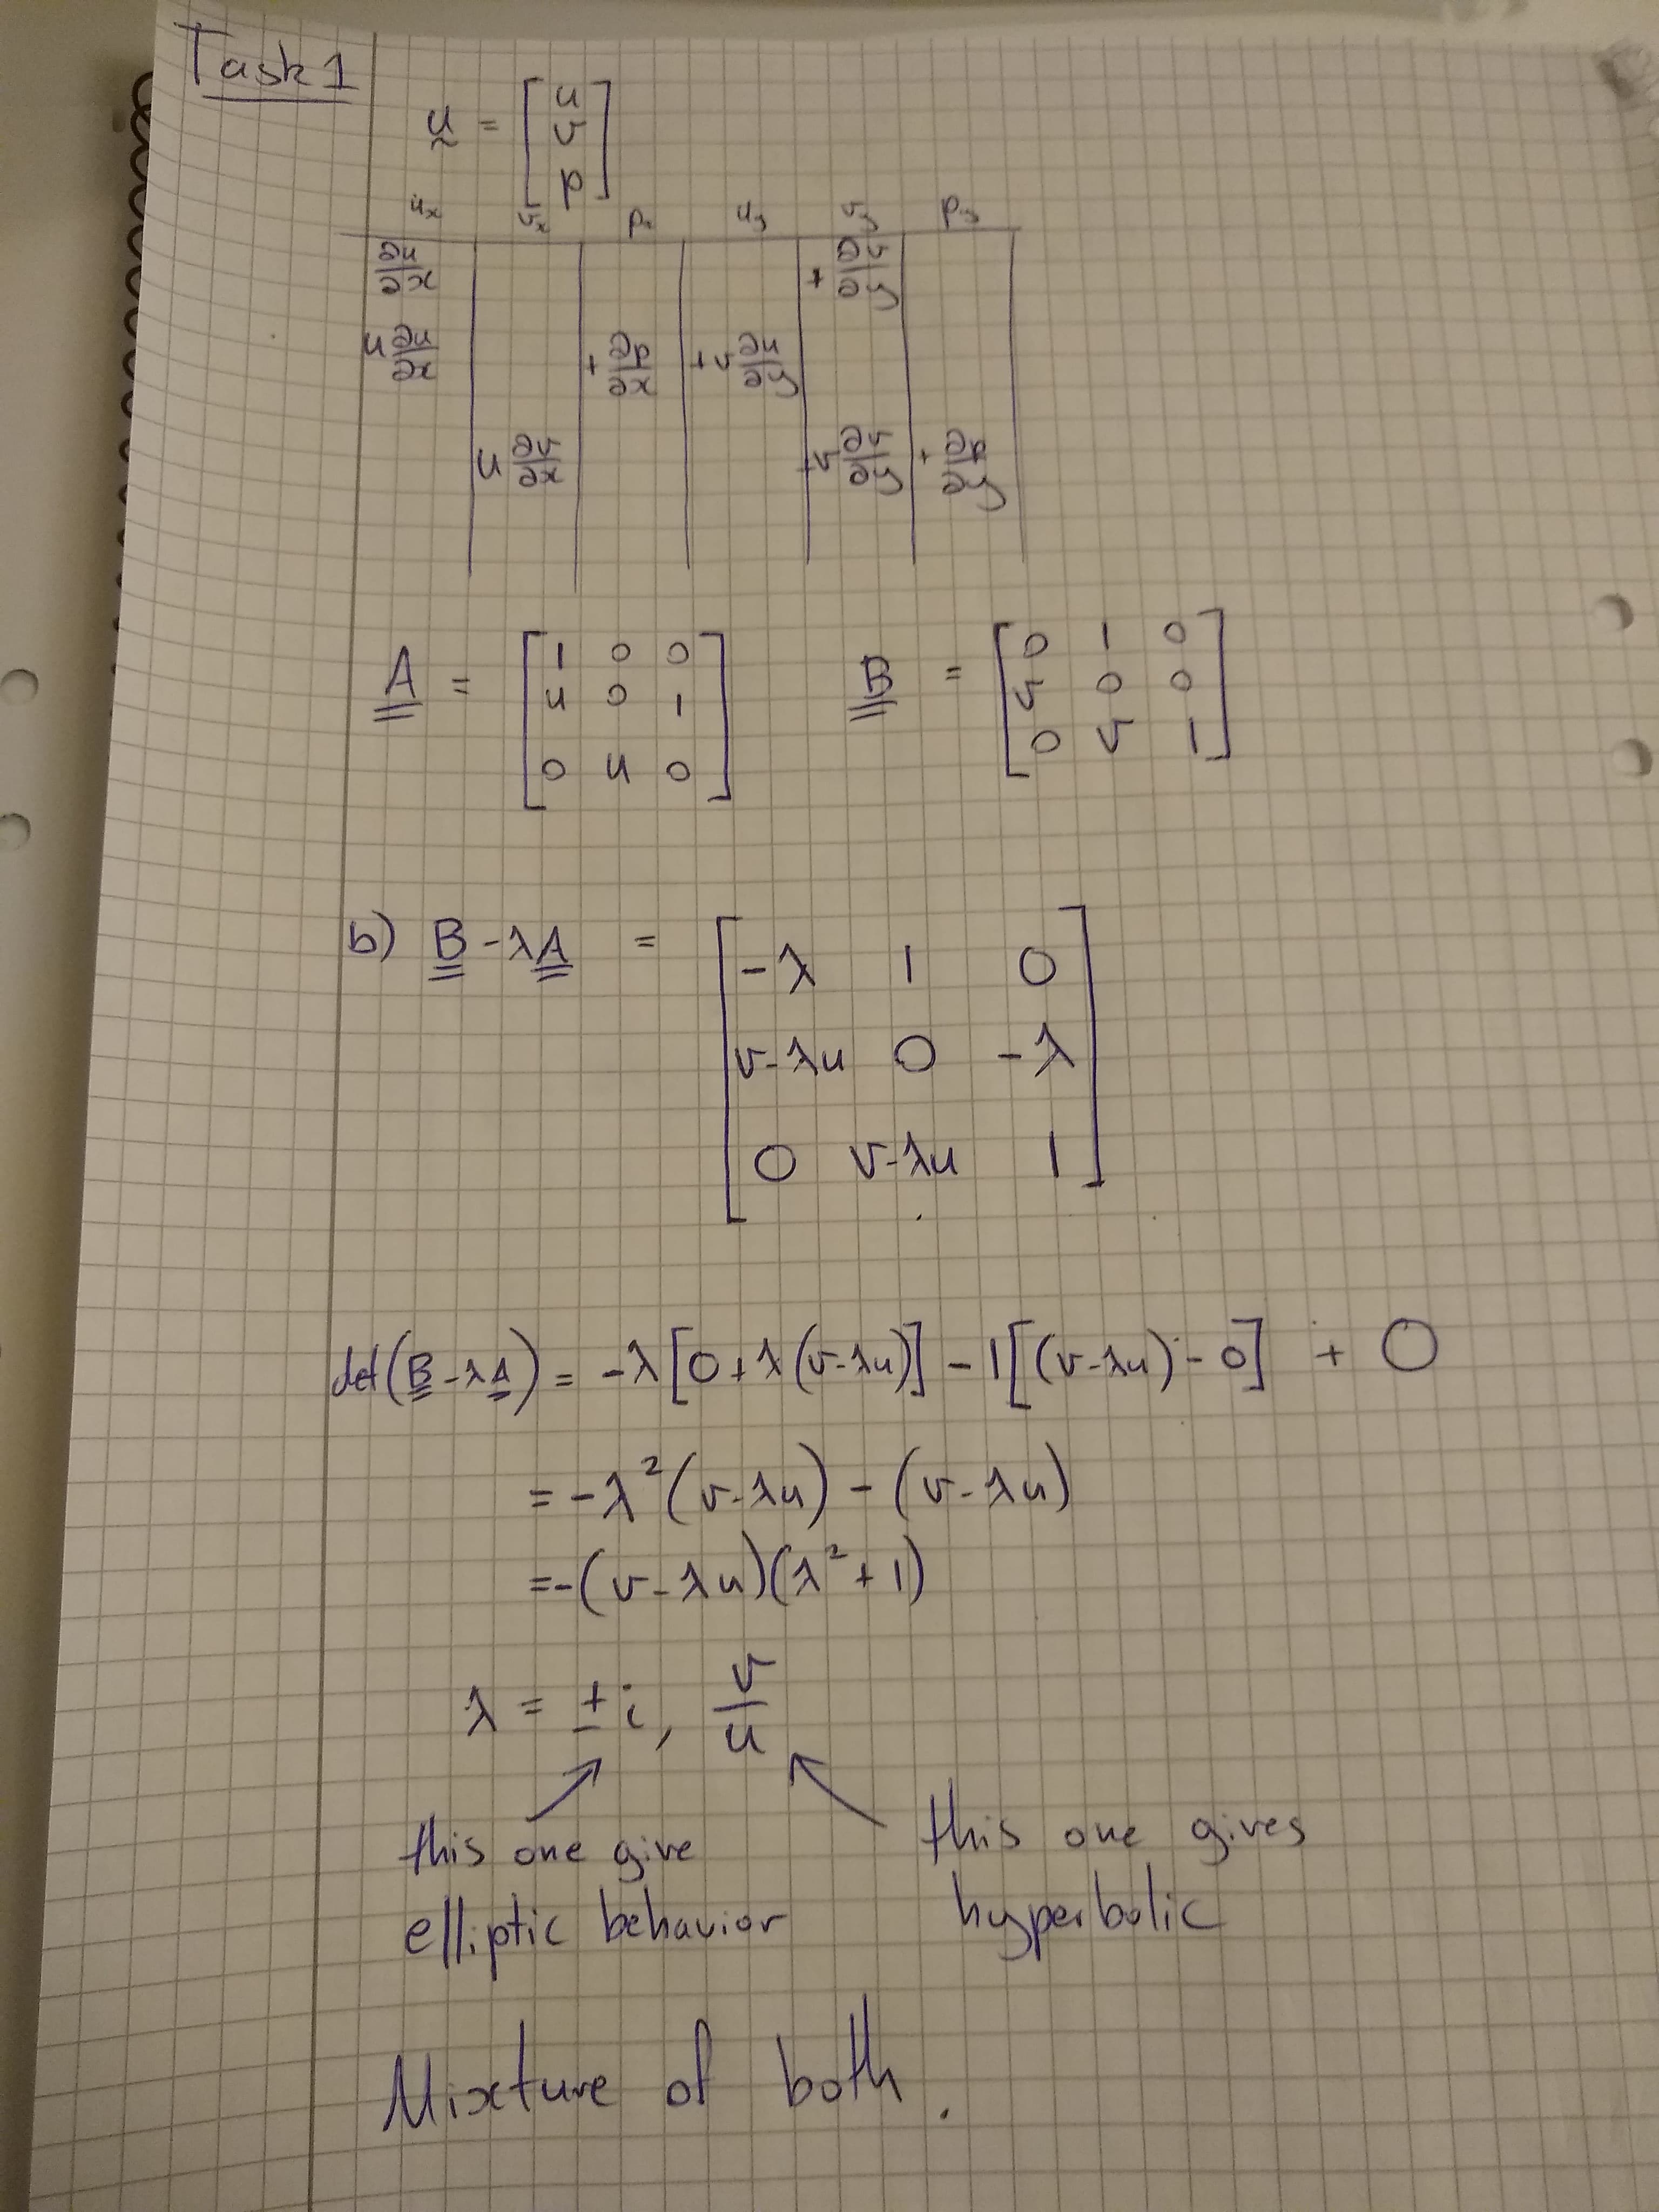 Task 1
u = [u v p]
u_x v_x p_x u_y v_y p_y
∂u/∂x + ∂v/∂y
u ∂u/∂x + ∂p/∂x + v ∂u/∂y
u ∂v/∂x + v ∂v/∂y + ∂p/∂y
A = [1 0 0; u 0 1; 0 u 0] B = [0 1 0; v 0 0; 0 v 1]
b) B - λA = [-λ 1 0; v-λu 0 -λ; 0 v-λu 1]
det(B - λA) = -λ[0 + λ(v-λu)] - 1[(v-λu) - 0] + 0
= -λ²(v-λu) - (v-λu)
= -(v-λu)(λ² + 1)
λ = ±i, v/u
this one give
elliptic behavior
this one gives
hyperbolic
Mixture of both.